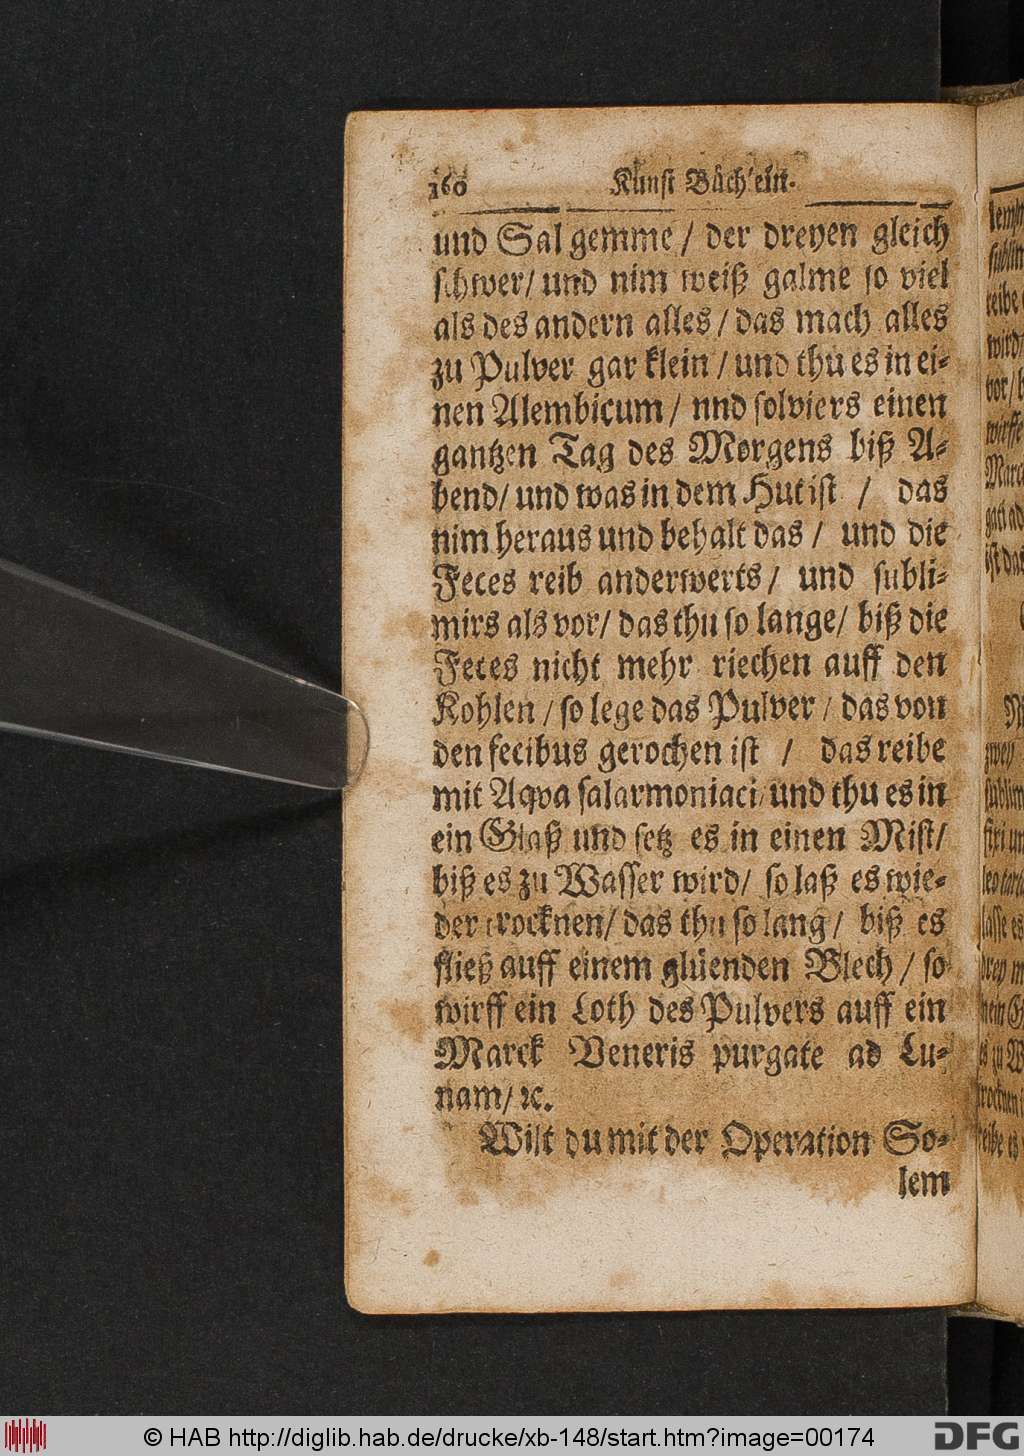 160 Kunst Büchlein.
und Sal gemme / der dreyen gleich
schwer / und nim weiß galme so viel
als des andern alles / das mach alles
zu Pulver gar klein / und thu es in ei-
nen Alembicum / nnd solviers einen
gantzen Tag des Morgens biß A-
bend / und was in dem Hut ist / das
nim heraus und behalt das / und die
Feces reib anderwerts / und subli-
mirs als vor / das thu so lange / biß die
Feces nicht mehr riechen auff den
Kohlen / so lege das Pulver / das von
den fecibus gerochen ist / das reibe
mit Aqva salarmoniaci / und thu es in
ein Glaß und setz es in einen Mist /
biß es zu Wasser wird / so laß es wie-
der trocknen / das thu so lang / biß es
fließ auff einem glüenden Blech / so
wirff ein Loth des Pulvers auff ein
Marck Veneris purgate ad Lu-
nam / ꝛc.
Wilt du mit der Operation So-
lem
© HAB http://diglib.hab.de/drucke/xb-148/start.htm?image=00174
DFG